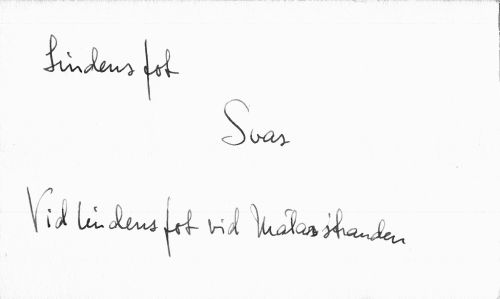 Lindens fot
Svas
Vid lindens fot vid Mälarstranden